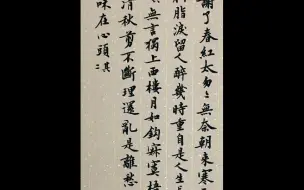 謝了春紅太匆匆無奈朝來寒
脂淚留人醉幾時重自是人生長
無言獨上西樓月如鉤寂寞梧
清秋剪不斷理還亂是離愁
味在心頭 其二